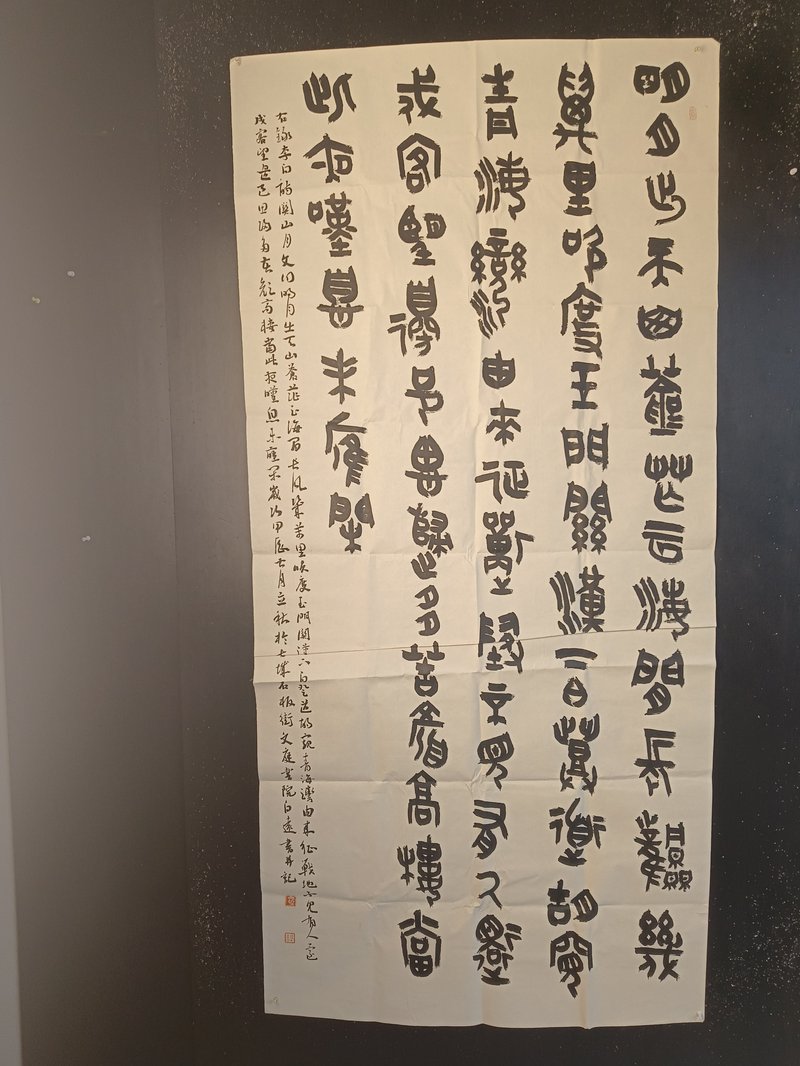 明月出天山蒼茫云海間長風幾
萬里吹度玉門關漢下白登道胡窺
青海灣由來征戰地不見有人還
戍客望邊邑思歸多苦顏高樓當
此夜嘆息未應閑
右錄李白詩關山月文曰明月出天山蒼茫云海間長風幾萬里吹度玉門關漢下白登道胡窺青海灣由來征戰地不見有人還
戍客望邊邑思歸多苦顏高樓當此夜嘆息未應閑歲次甲辰七月立秋於石板街文庭書院白遠書并記